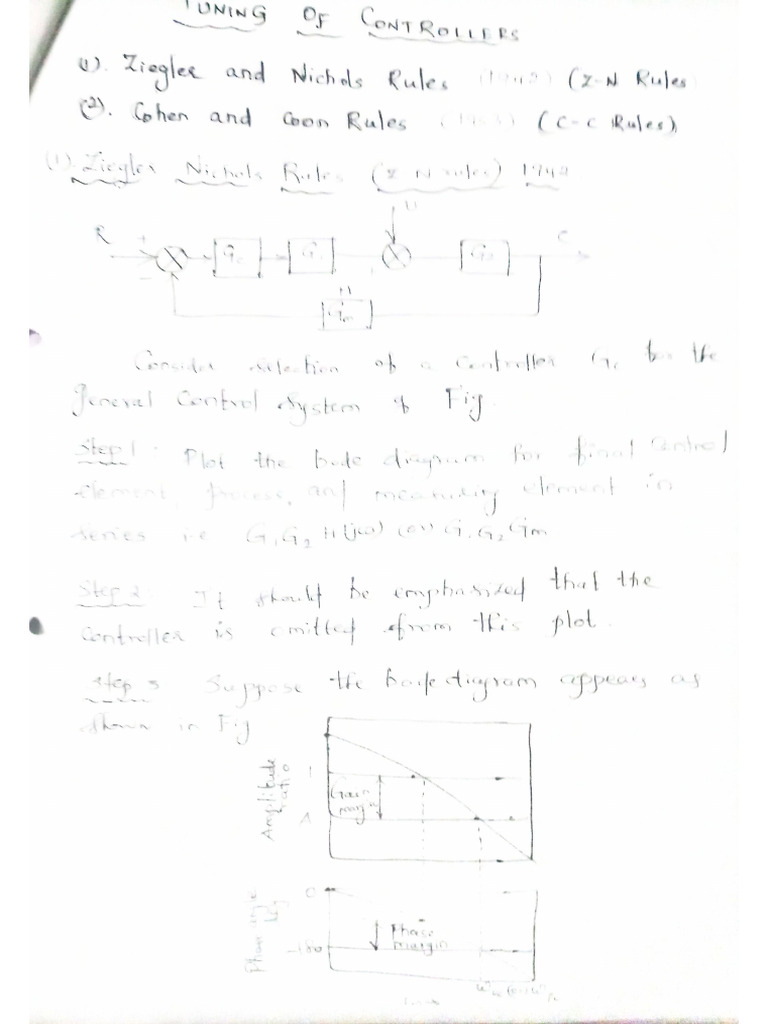 TUNING OF CONTROLLERS
(1). Ziegler and Nichols Rules (1942) (Z-N Rules
(2). Cohen and Coon Rules (C-C Rules)
(1). Ziegler Nichols Rules (Z N rules) 1942
R + C
-
Gc
H
Gm
Consider selection of a Controller Gc for the
general Control System of Fig
Step 1 Plot the bode diagram for final Control
element, process, and measuring element in
series i.e G1G2 H(jω) (or) G1G2Gm
Step 2 It should be emphasized that the
Controller is omitted from this plot.
Step 3 Suppose the bode diagram appears as
shown in Fig
Amplitude ratio
1
Gain margin
A
Phase angle
0
Phase margin
-180